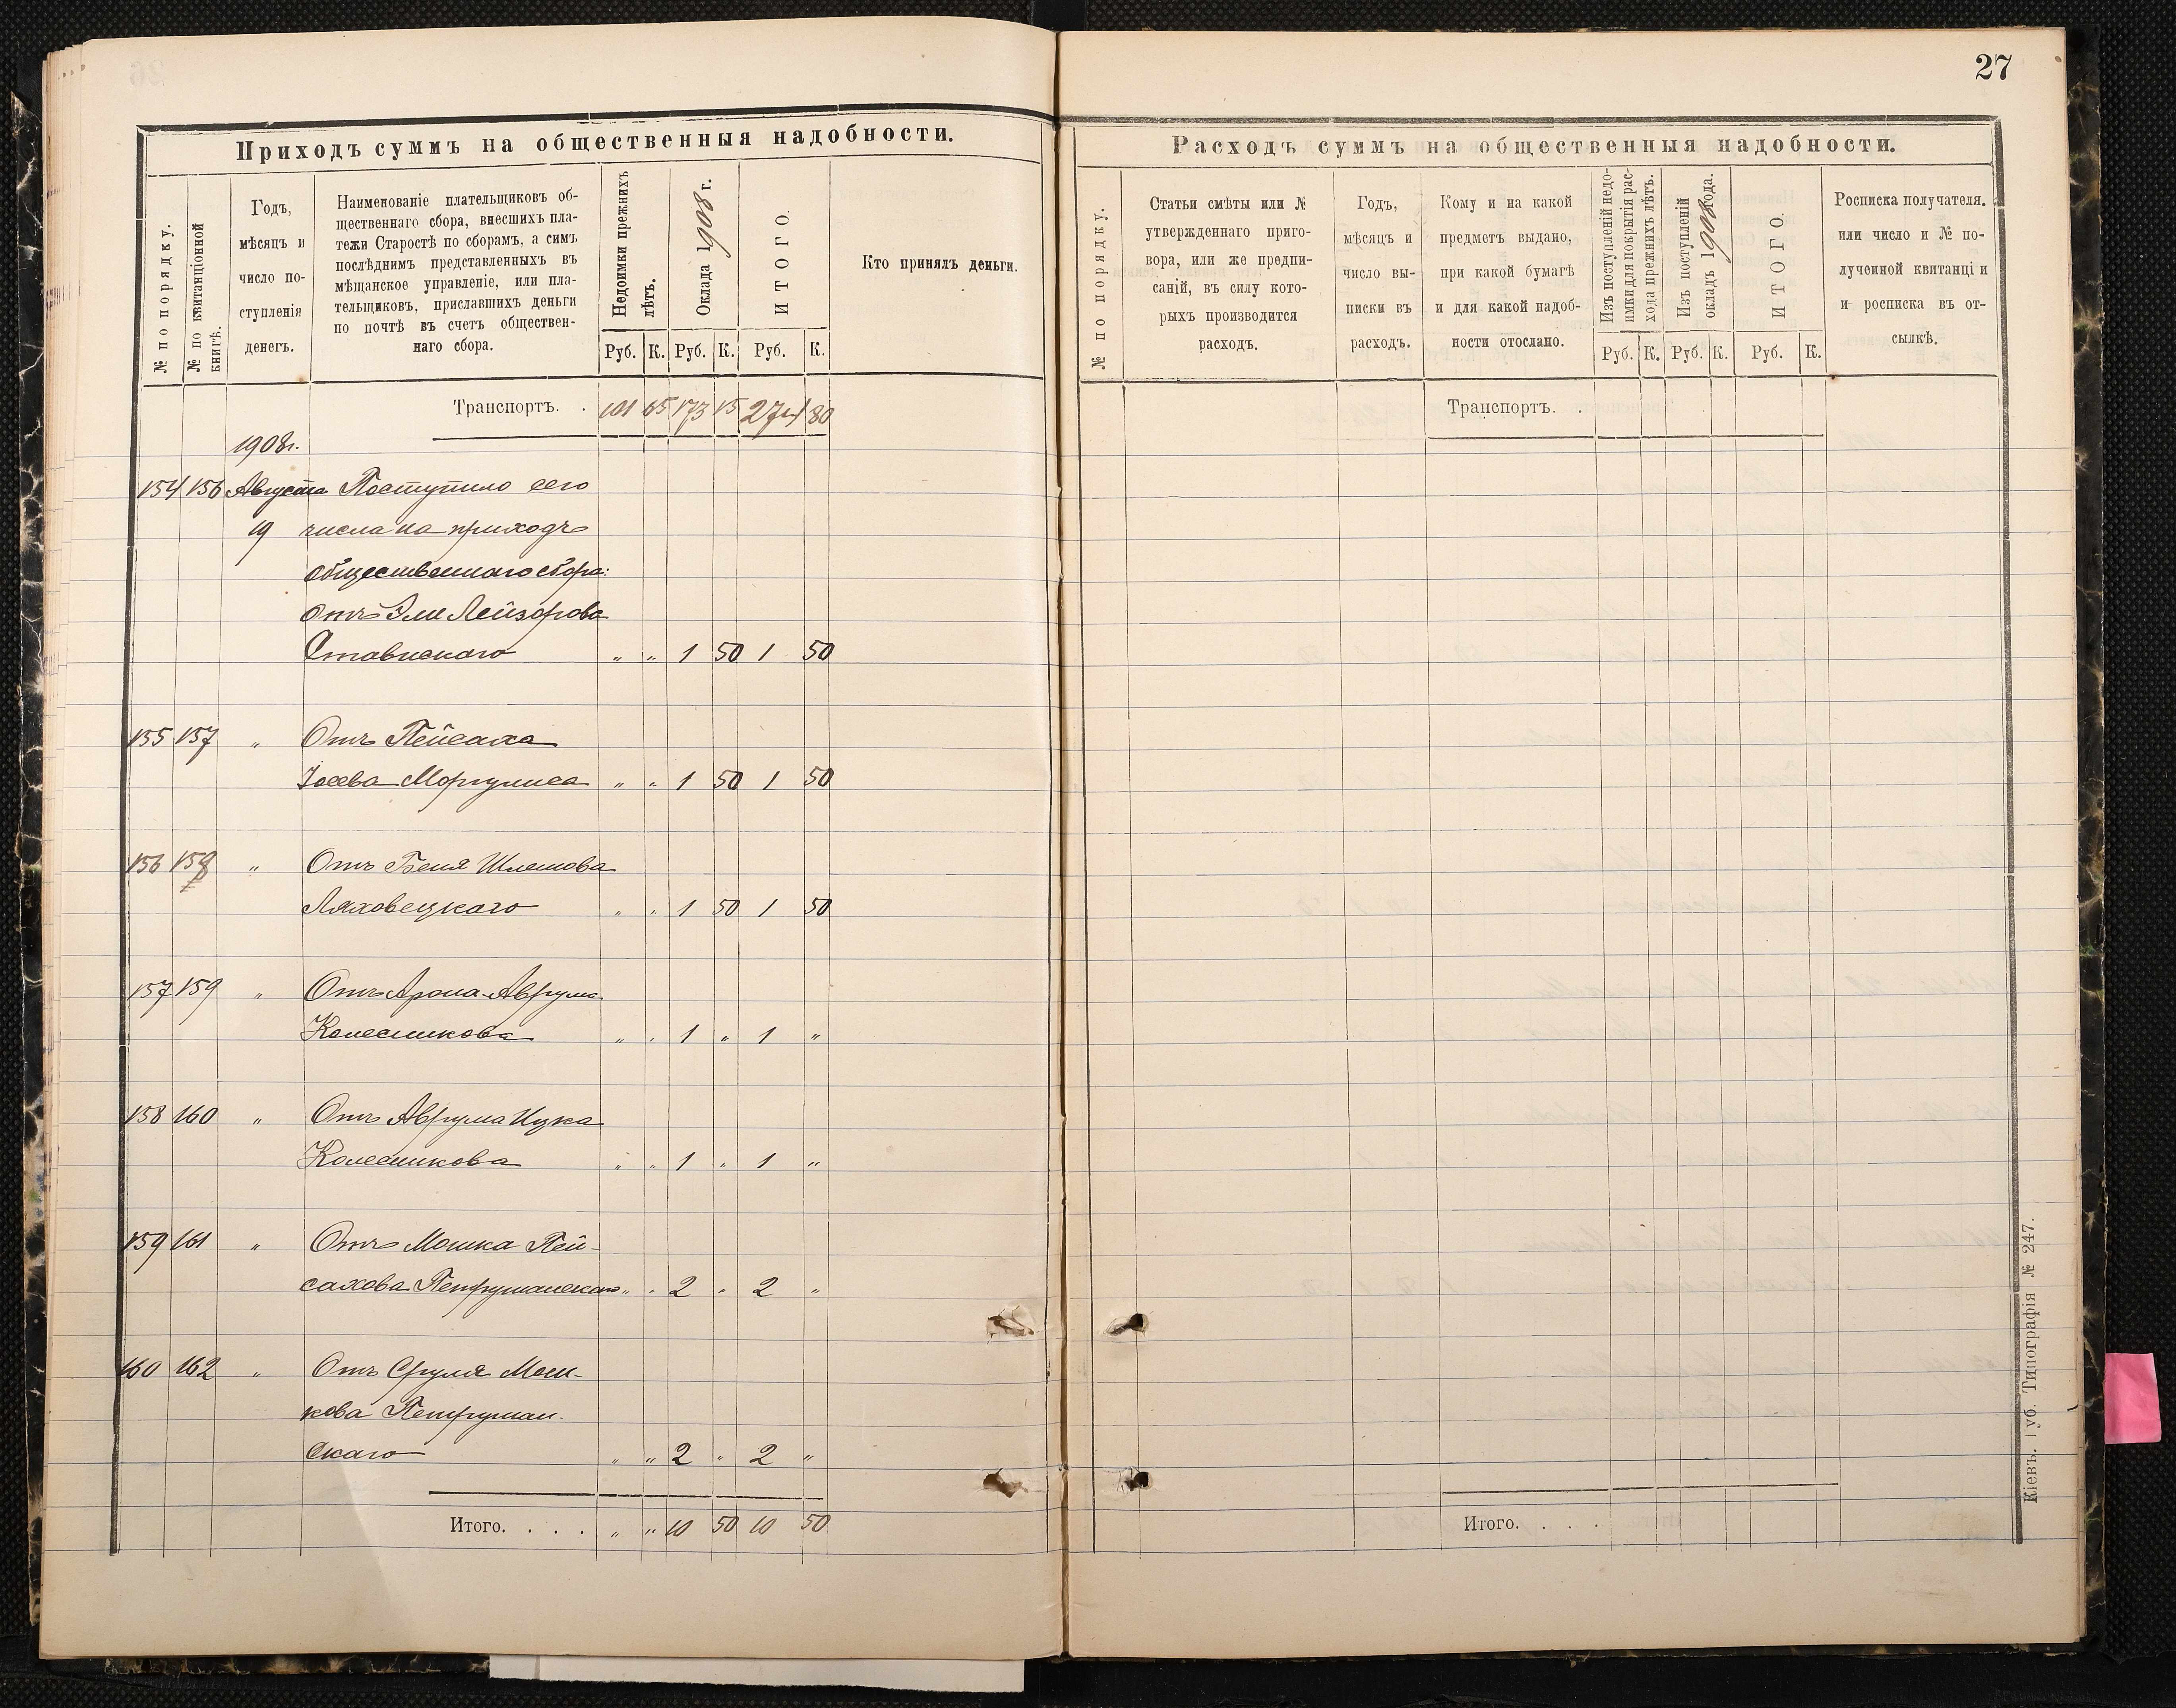 27
Приходъ суммъ на общественныя надобности.
№ по порядку.
№ по квитанціонной книгѣ.
Годъ,
мѣсяцъ и
число по-
ступленія
денегъ.
Наименованіе плательщиковъ об-
щественнаго сбора, внесшихъ пла-
тежи Старостѣ по сборамъ, а симъ
послѣднимъ представленныхъ въ
мѣщанское управленіе, или пла-
тельщиковъ, приславшихъ деньги
по почтѣ въ счетъ обществен-
наго сбора.
Недоимки прежнихъ
лѣтъ.
Оклада 1908 г.
ИТОГО.
Кто принялъ деньги.
Руб. К. Руб. К. Руб. К.
Транспортъ. . 101 65 173 15 274 80
1908г.
154 156 Августа Поступило сего
19 числа на приходъ
общественнаго сбора:
Отъ Эли Лейзорова
Ставискаго " " 1 50 1 50
155 157 " Отъ Пейсаха
Іосева Моргулиса " " 1 50 1 50
156 158 " Отъ Беня Шлемова
Ляховецкаго " " 1 50 1 50
157 159 " Отъ Арона-Аврума
Колесникова " " 1 " 1 "
158 160 " Отъ Аврума Ицка
Колесникова " " 1 " 1 "
159 161 " Отъ Мошка Пей-
сахова Петрушанскаго " " 2 " 2 "
160 162 " Отъ Сруля Мош-
кова Петрушан-
скаго " " 2 " 2 "
Итого. . . . " " 10 50 10 50
Расходъ суммъ на общественныя надобности.
№ по порядку.
Статьи смѣты или №
утвержденнаго приго-
вора, или же предпи-
саній, въ силу кото-
рыхъ производится
расходъ.
Годъ,
мѣсяцъ и
число вы-
писки въ
расходъ.
Кому и на какой
предметъ выдано,
при какой бумагѣ
и для какой надоб-
ности отослано.
Изъ поступленій недо-
имки для покрытія рас-
хода прежнихъ лѣтъ.
Изъ поступленій
окладъ 1908 года.
ИТОГО.
Росписка получателя.
или число и № по-
лученной квитанціи
и росписка въ от-
сылкѣ.
Руб. К. Руб. К. Руб. К.
Транспортъ. .
Итого. . . .
Кіевъ. Губ. Типографія № 247.